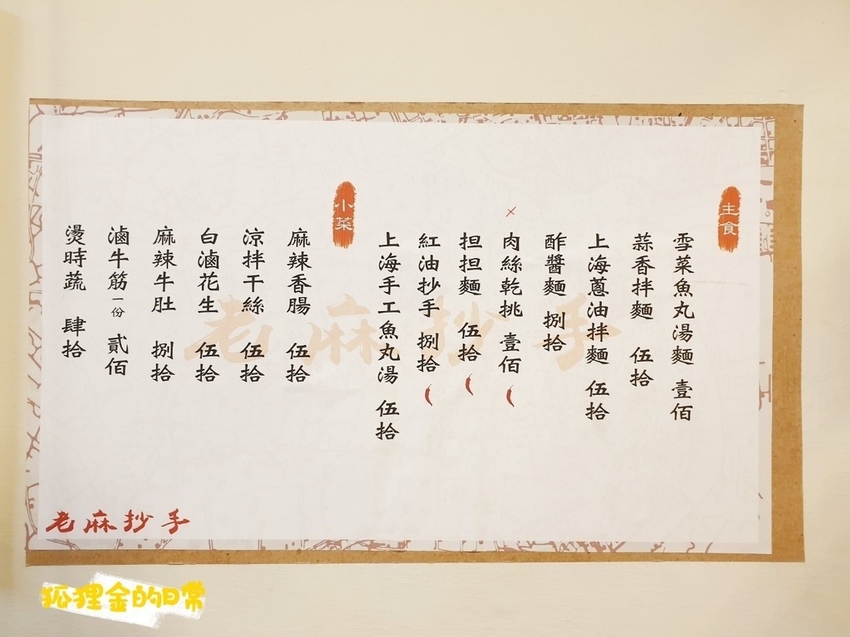 主食
雪菜魚丸湯麵 壹佰
蒜香拌麵 伍拾
上海蔥油拌麵 伍拾
酢醬麵 捌拾
肉絲乾挑 壹佰
担担麵 伍拾
紅油抄手 捌拾
上海手工魚丸湯 伍拾
小菜
麻辣香腸 伍拾
涼拌干絲 伍拾
白滷花生 伍拾
麻辣牛肚 捌拾
滷牛筋一份 貳佰
燙時蔬 肆拾
老麻抄手
老麻抄手
狐狸金的日常